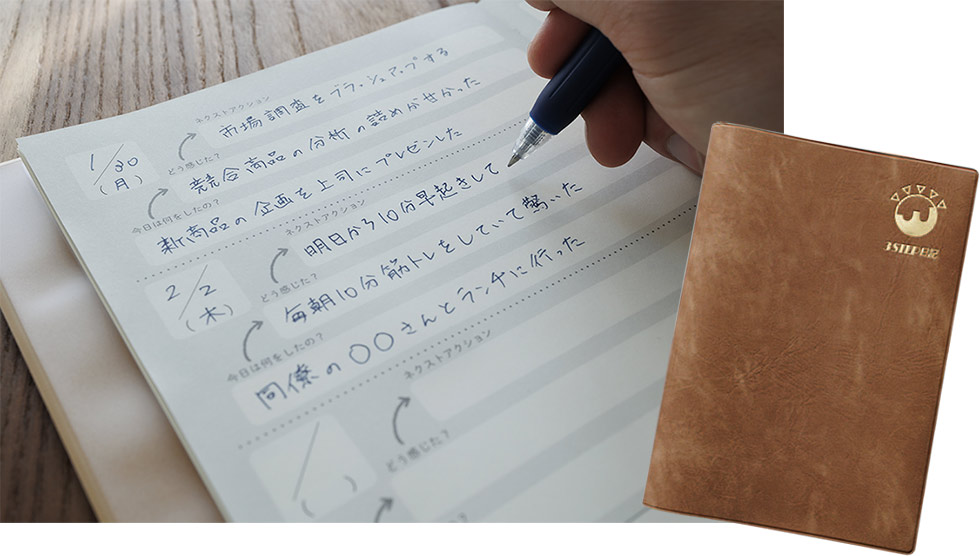 ネクストアクション
市場調査をブラッシュアップする
どう感じた？
競合商品の分析の詰めが甘かった
1/30
(月)
今日は何をしたの？
新商品の企画を上司にプレゼンした
ネクストアクション
明日から10分早起きして
どう感じた？
毎朝10分筋トレをしていて驚いた
2/2
(木)
今日は何をしたの？
同僚の〇〇さんとランチに行った
ネクストアクション
どう感じた？
/
( )
3STEP日記